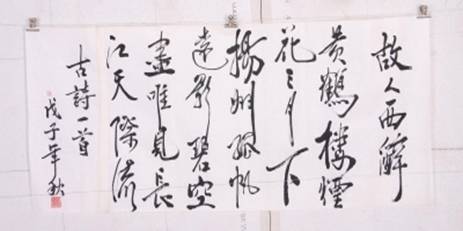 故人西辭
黃鶴樓煙
花三月下
揚州孤帆
遠影碧空
盡唯見長
江天際流
古詩一首
戊子年秋